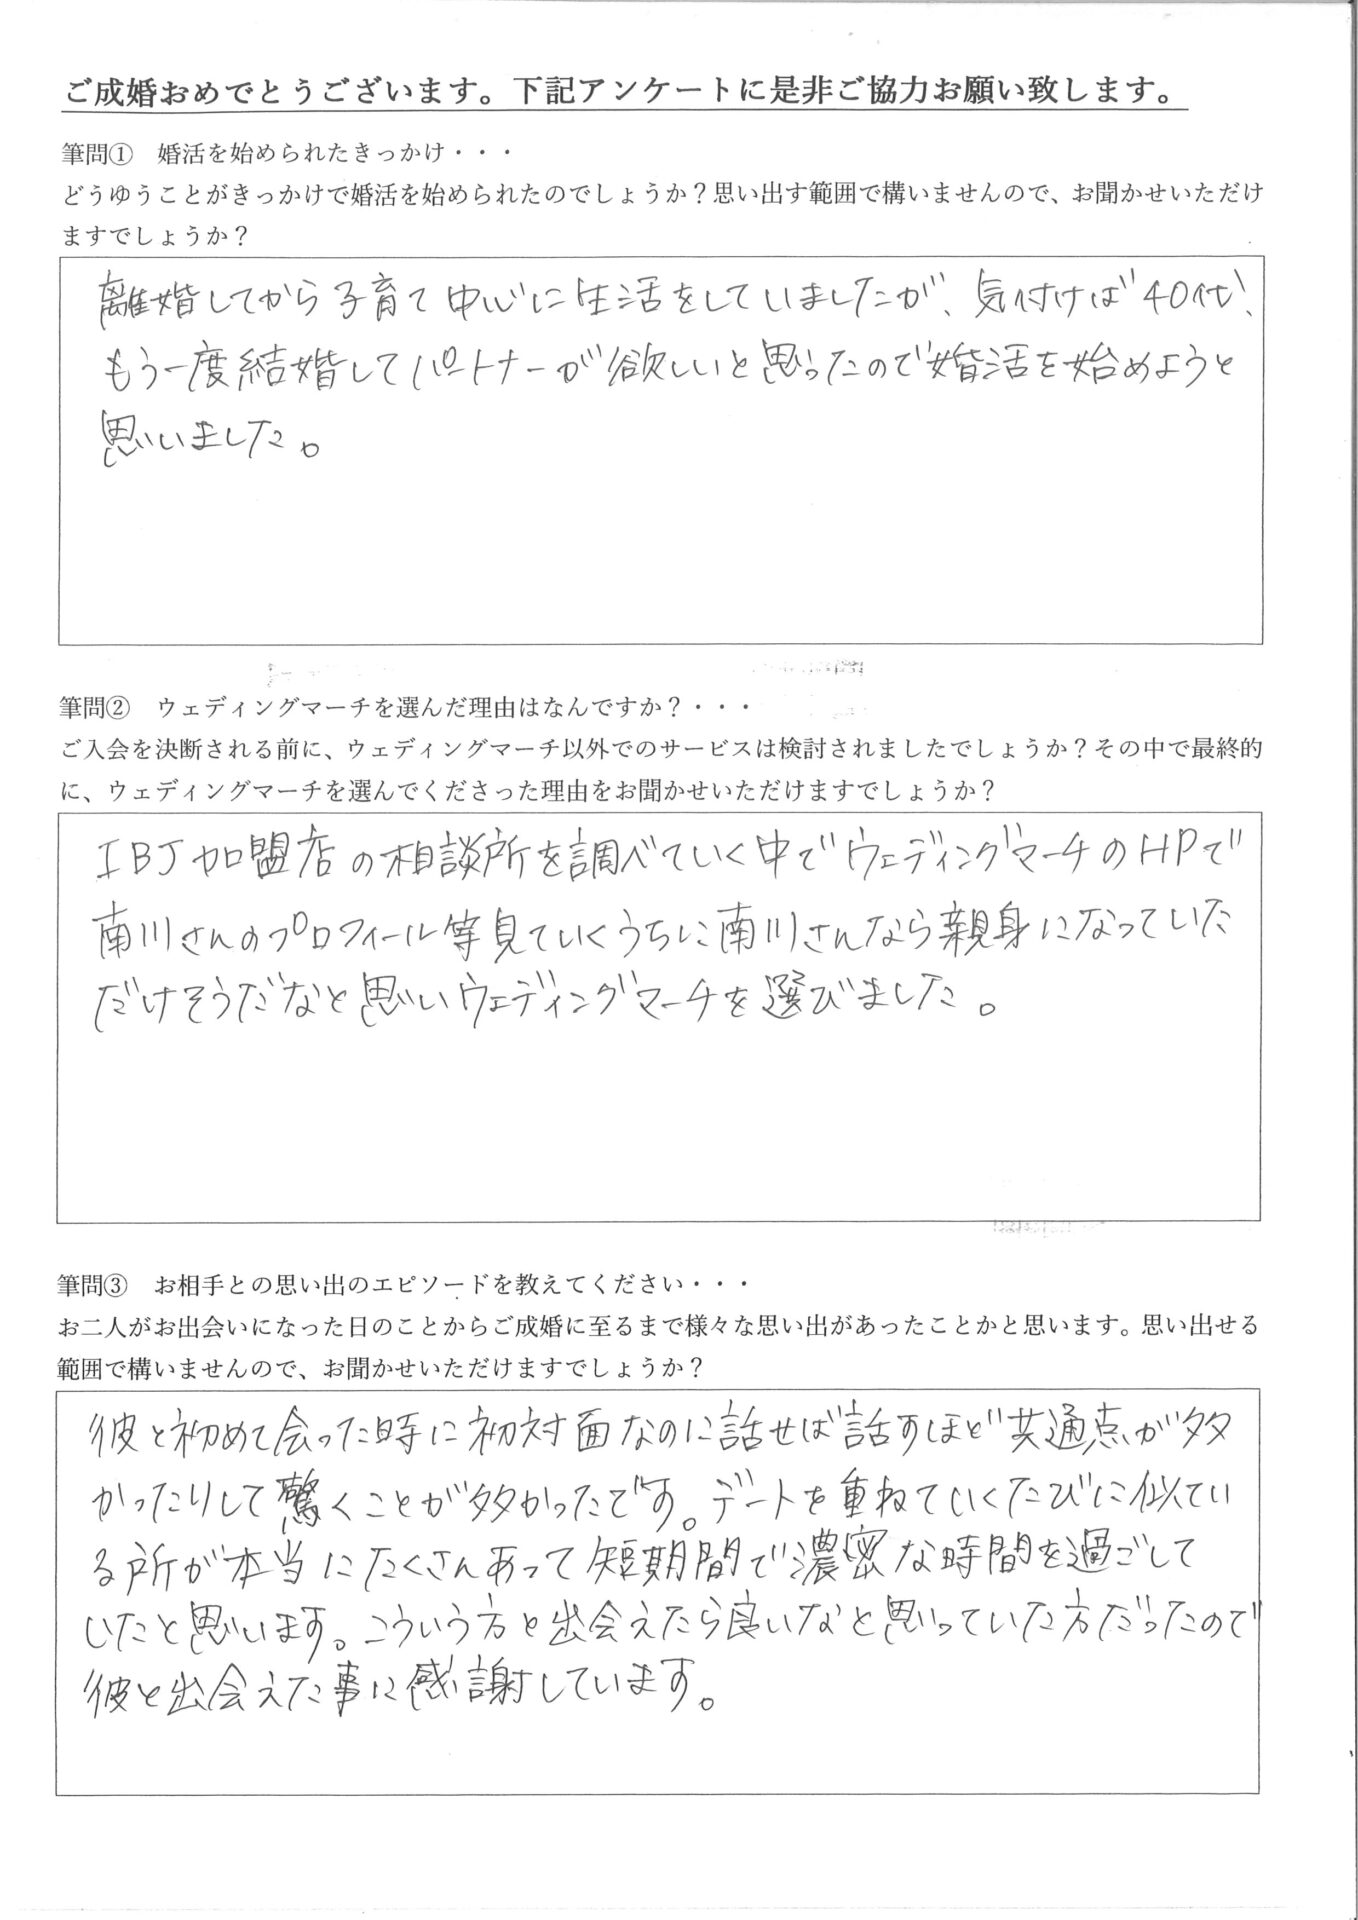 ご成婚おめでとうございます。下記アンケートに是非ご協力お願い致します。
筆問①　婚活を始められたきっかけ・・・
どうゆうことがきっかけで婚活を始められたのでしょうか？思い出す範囲で構いませんので、お聞かせいただけ
ますでしょうか？
離婚してから子育て中心に生活をしていましたが、気付けば40代、
もう一度結婚してパートナーが欲しいと思ったので婚活を始めようと
思いました。
筆問②　ウェディングマーチを選んだ理由はなんですか？・・・
ご入会を決断される前に、ウェディングマーチ以外でのサービスは検討されましたでしょうか？その中で最終的
に、ウェディングマーチを選んでくださった理由をお聞かせいただけますでしょうか？
IBJ加盟店の相談所を調べていく中でウェディングマーチのHPで
南川さんのプロフィール等見ていくうちに南川さんなら親身になっていた
だけそうだなと思いウェディングマーチを選びました。
筆問③　お相手との思い出のエピソードを教えてください・・・
お二人がお出会いになった日のことからご成婚に至るまで様々な思い出があったことかと思います。思い出せる
範囲で構いませんので、お聞かせいただけますでしょうか？
彼と初めて会った時に初対面なのに話せば話すほど共通点が多
かったりして驚くことが多かったです。デートを重ねていくたびに似てい
る所が本当にたくさんあって短期間で濃密な時間を過ごして
いたと思います。こういう方と出会えたら良いなと思っていた方だったので
彼と出会えた事に感謝しています。